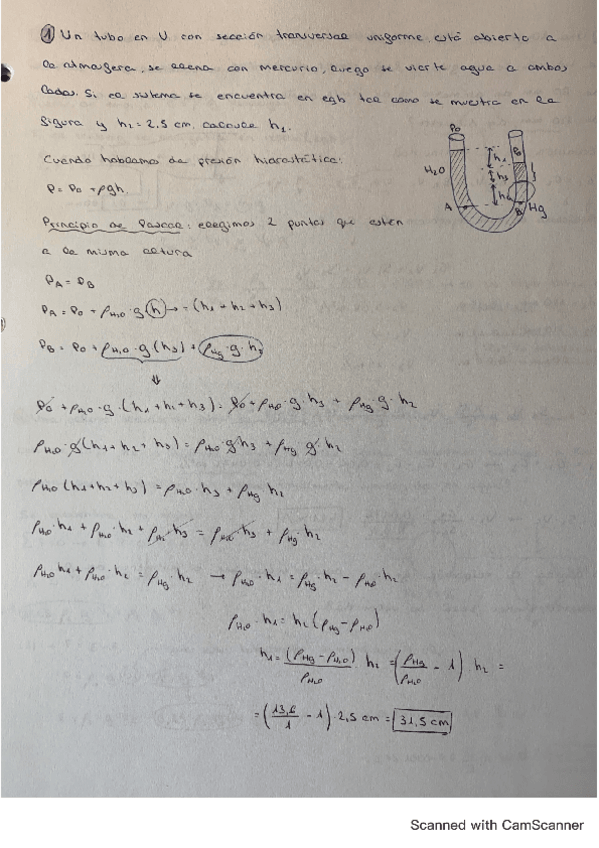 1 Un tubo en U con sección transversal uniforme, está abierto a
la atmósfera, se llena con mercurio, luego se vierte agua a ambos
lados. Si el sistema se encuentra en eqb tal como se muestra en la
figura y h2 = 2,5 cm, calcule h1.
Cuando hablamos de presión hidrostática:
P = P0 + ρgh.
Principio de Pascal: elegimos 2 puntos que estén
a la misma altura
P0
P0
H2O
h1
h3
h2
A
B
Hg
PA = PB
PA = P0 + ρH2O · g (h) → = (h1 + h2 + h3)
PB = P0 + ρH2O · g (h3) + ρHg · g · h2
⇓
P0 + ρH2O · g · (h1 + h2 + h3) = P0 + ρH2O · g · h3 + ρHg · g · h2
ρH2O · g (h1 + h2 + h3) = ρH2O · g h3 + ρHg g · h2
ρH2O (h1 + h2 + h3) = ρH2O · h3 + ρHg h2
ρH2O · h1 + ρH2O · h2 + ρH2O h3 = ρH2O · h3 + ρHg · h2
ρH2O h1 + ρH2O · h2 = ρHg · h2 → ρH2O · h1 = ρHg · h2 − ρH2O · h2
ρH2O · h1 = h2 (ρHg − ρH2O)
h1 = (ρHg − ρH2O) / ρH2O · h2 = (ρHg / ρH2O − 1) · h2 =
= (13,6 / 1 − 1) · 2,5 cm = 31,5 cm
Scanned with CamScanner